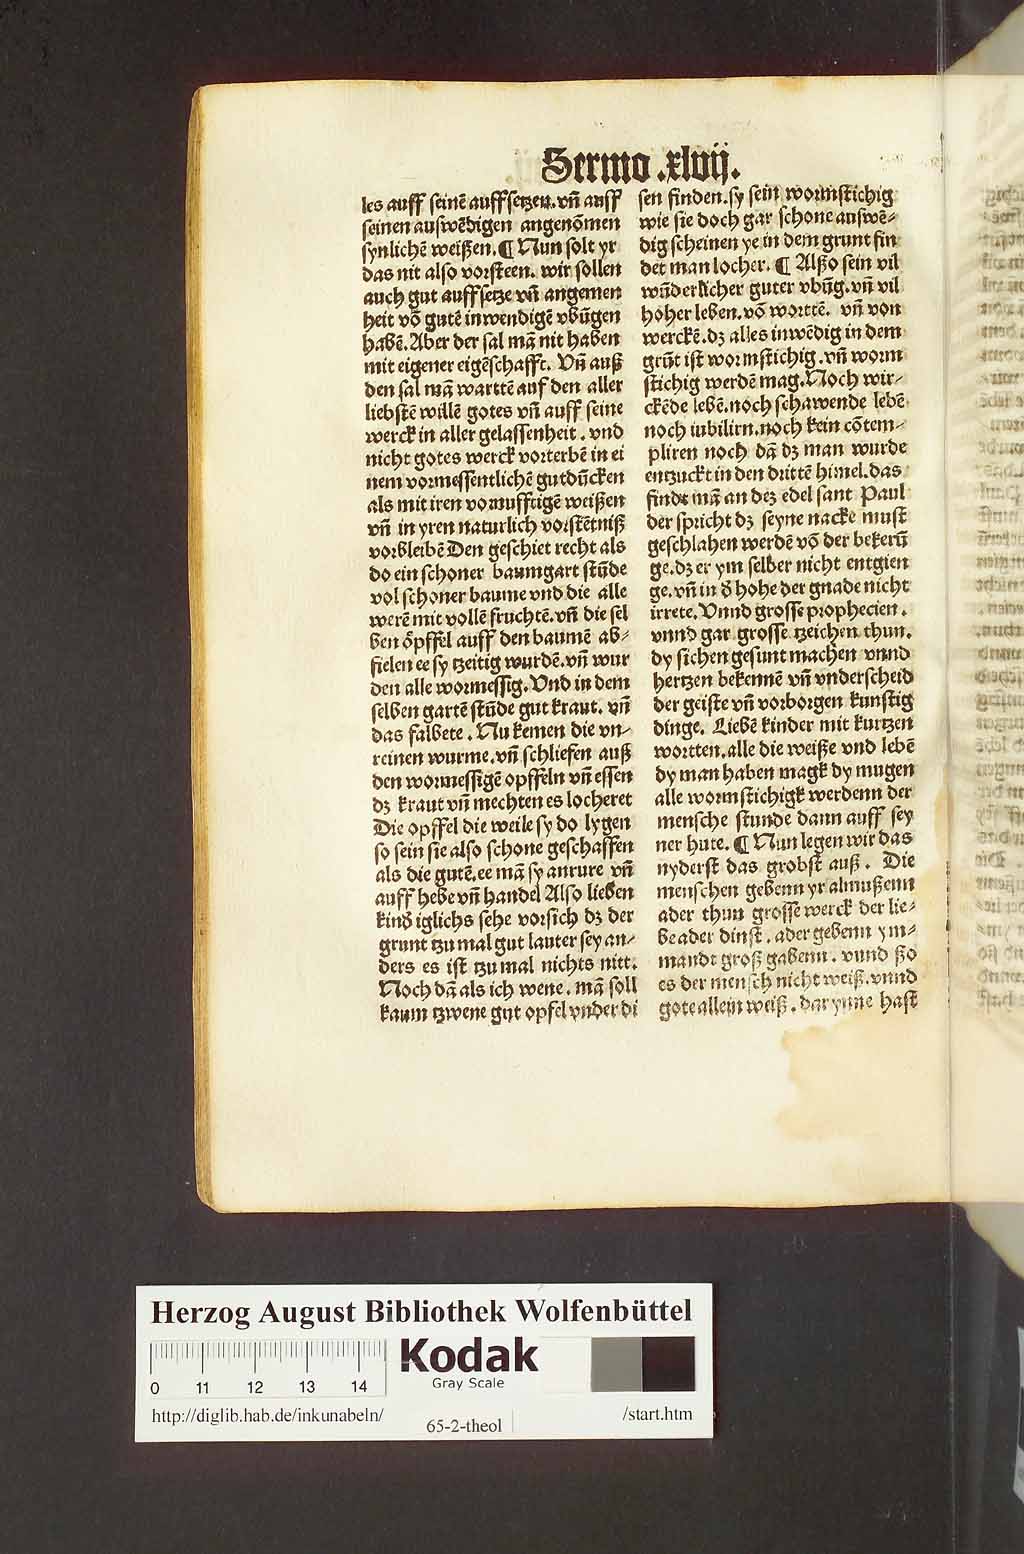 Sermo .xlvij.
les auff seinē auffsetzen. vn̄ auff
seinen auswēdigen angenōmen
synlichē weißen. ¶ Nun solt yr
das nit also vorsteen. wir sollen
auch gut auffsetze vn̄ angemen
heit vō gutē inwendigē vbūgen
habē. Aber der sal mā nit haben
mit eigener eigēschafft. Vn̄ auß
den sal mā wartte auf den aller
liebstē willē gotes vn̄ auff seine
werck in aller gelassenheit. vnd
nicht gotes werck vorterbē in ei
nem vormessentlichē gutdūcken
als mit iren vornufftigē weißen
vn̄ in yren naturlich vorstētniß
vorbleibē Den geschiet recht als
do ein schoner baumgart stūde
vol schoner baume vnd die alle
werē mit vollē fruchtē. vn̄ die sel
ben öpffel auff den baumē ab-
fielen ee sy tzeitig wurdē. vn̄ wur
den alle wormessig. Vnd in dem
selben gartē stūde gut kraut. vn̄
das falbete. Nu kemen die vn-
reinen wurme. vn̄ schliefen auß
den wormessigē opffeln vn̄ essen
dz kraut vn̄ mechten es locheret
Die opffel die weile sy do lygen
so sein sie also schone geschaffen
als die gutē. ee mā sy anrure vn̄
auff hebe vn̄ handel Also lieben
kind iglichs sehe vorsich dz der
grunt tzu mal gut lauter sey an-
ders es ist tzu mal nichts nitt.
Noch dā als ich wene. mā soll
kaum tzwene gut opfel vnder di
sen finden. sy sein wormstichig
wie sie doch gar schone auswē-
dig scheinen ye in dem grunt fin
det man locher. ¶ Alßo sein vil
wūderlicher guter vbūg. vn̄ vil
hoher leben. vō wortte. vn̄ von
werckē. dz alles inwēdig in dem
grūt ist wormstichig. vn̄ worm
stichig werdē mag. Noch wir-
ckēde lebē. noch schawende lebē
noch iubilirn. noch kein cōtem-
pliren noch dā dz man wurde
entzuckt in den drittē himel. das
findt mā an dez edel sant Paul
der spricht dz seyne nacke must
geschlahen werdē vō der bekerū
ge. dz er ym selber nicht entgien
ge. vn̄ in đ hohe der gnade nicht
irrete. Vnnd grosse prophecien.
vnnd gar grosse tzeichen thun.
dy sichen gesunt machen vnnd
hertzen bekennē vn̄ vnderscheid
der geiste vn̄ vorborgen kunftig
dinge. Liebē kinder mit kurtzen
wortten. alle die weiße vnd lebē
dy man haben magk dy mugen
alle wormstichigk werdenn der
mensche stunde dann auff sey
ner hute. ¶ Nun legen wir das
nyderst das grobst auß. Die
menschen gebenn yr almußenn
ader thun grosse werck der lie-
be ader dinst. ader gebenn ym-
mandt groß gabenn. vnnd ßo
es der mensch nicht weiß. vnnd
gote allein weiß. dar ynne hast
Herzog August Bibliothek Wolfenbüttel
0 11 12 13 14
Kodak
Gray Scale
http://diglib.hab.de/inkunabeln/
65-2-theol
/start.htm